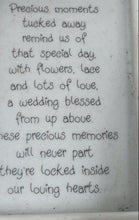 Precious moments
tucked away
remind us of
that special day,
with flowers, lace
and lots of love,
a wedding blessed
from up above.
these precious memories
will never part
they're locked inside
our loving hearts.